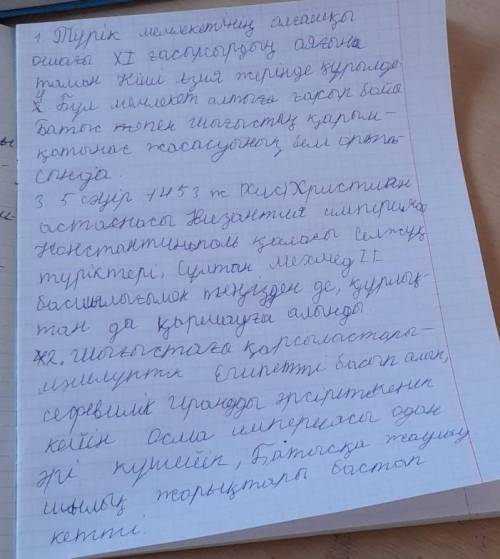 1 Түрік мемлекетінің алғашқы
ошағы XI ғасырсырдың аяғына
таман Кіші Азия жерінде құрылды
4 Бұл мемлекет алтыға ғасыр бойы
Батыс пен шығыстың қарым-
қатынас жасасуының орта-
сында.
3 5 сәуір 1453 ж Христиан
астанасы Византия
Константинополь қаласы селжұқ
түріктері, Сұлтан Мехмед II
басшылығымен теңізден де, құрлық-
тан да қармауға алынды
2. Шығыстағы қарсыластары-
Египетті басып алып,
сефевилік Иранды әлсіреткеннен
кейін Осман империясы одан
әрі күшейіп, Батысқа жаулау
шылық жорықтары бастап
кетті.